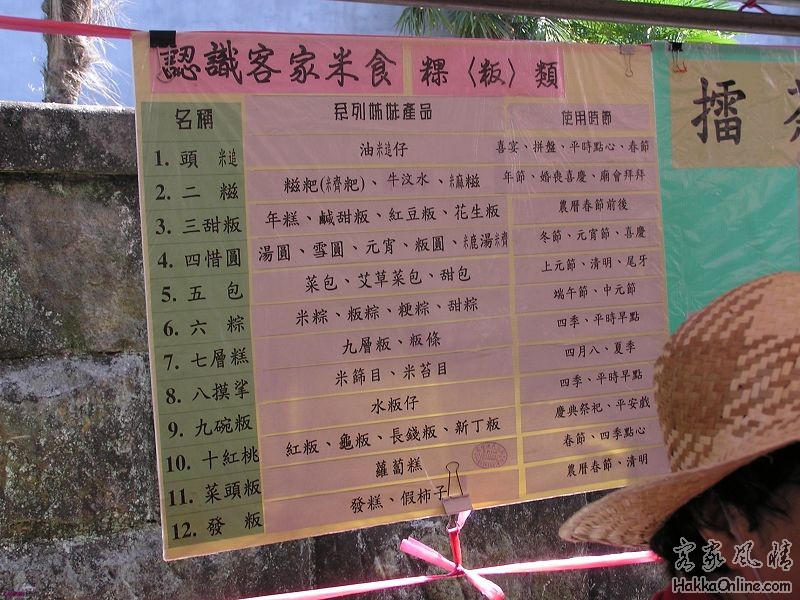 認識客家米食 粿〈粄〉類
名稱 系列姊妹產品 使用時節
1. 頭 米追 油米追仔 喜宴、拼盤、平時點心、春節
2. 二 糍 糍粑(米齊粑)、牛汶水、米麻糍 年節、婚喪喜慶、廟會拜拜
3. 三甜粄 年糕、鹹甜粄、紅豆粄、花生粄 農曆春節前後
4. 四惜圓 湯圓、雪圓、元宵、粄圓、米鹿湯米齊 冬節、元宵節、喜慶
5. 五 包 菜包、艾草菜包、甜包 上元節、清明、尾牙
6. 六 粽 米粽、粄粽、粳粽、甜粽 端午節、中元節
7. 七層糕 九層粄、粄條 四季、平時早點
8. 八摸挲 米篩目、米苔目 四月八、夏季
9. 九碗粄 水粄仔 四季、平時早點
10. 十紅桃 紅粄、龜粄、長錢粄、新丁粄 慶典祭祀、平安戲
11. 菜頭粄 蘿蔔糕 春節、四季點心
12. 發 粄 發糕、假柿子 農曆春節、清明
擂
客家風情
HakkaOnline.com